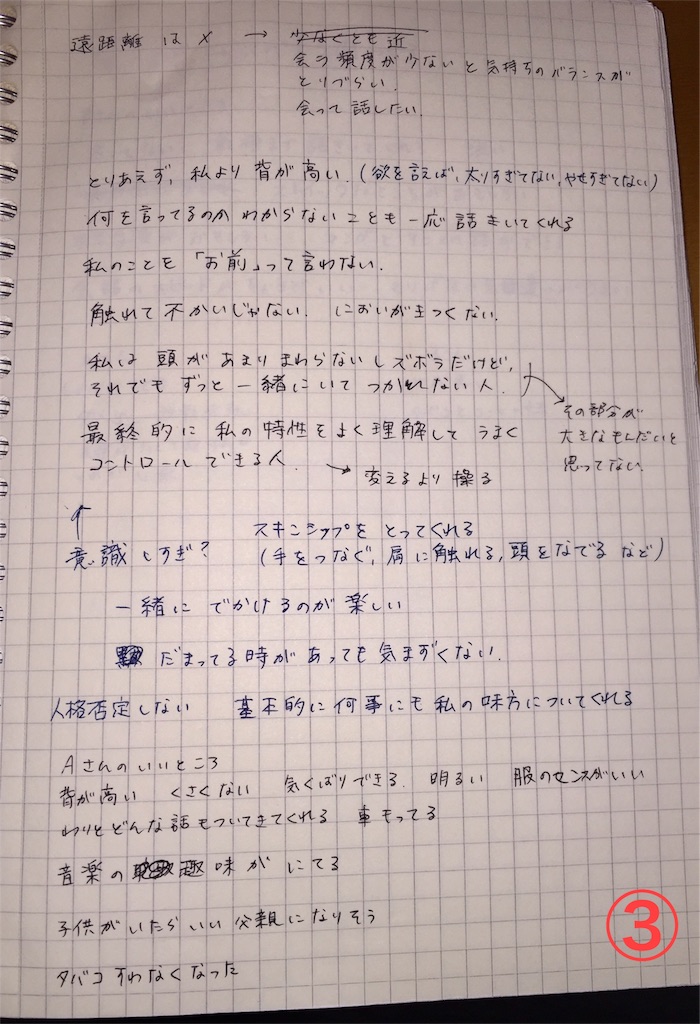 遠距離は× → 少なくとも近
会う頻度が少ないと気持ちのバランスが
とりづらい.
会って話したい.
とりあえず, 私より背が高い. (欲を言えば, 太りすぎてない, やせすぎてない)
何を言ってるのかわからないことも一応話きいてくれる
私のことを「お前」って言わない.
触れて不かいじゃない. においがきつくない.
私は頭があまりまわらないしズボラだけど,
それでもずっと一緒にいてつかれない人.
その部分が
大きなもんだいと
思ってない.
最終的に私の特性をよく理解してうまく
コントロールできる人. → 変えるより操る
↑
意識しすぎ?
スキンシップをとってくれる
(手をつなぐ, 肩に触れる, 頭をなでるなど)
一緒にでかけるのが楽しい
だまってる時があっても気まずくない.
人格否定しない 基本的に何事にも私の味方についてくれる
Aさんのいいところ
背が高い くさくない 気くばりできる. 明るい 服のセンスがいい
わりとどんな話もついてきてくれる 車もってる
音楽の趣味がにてる
子供がいたらいい父親になりそう
タバコすわなくなった
③